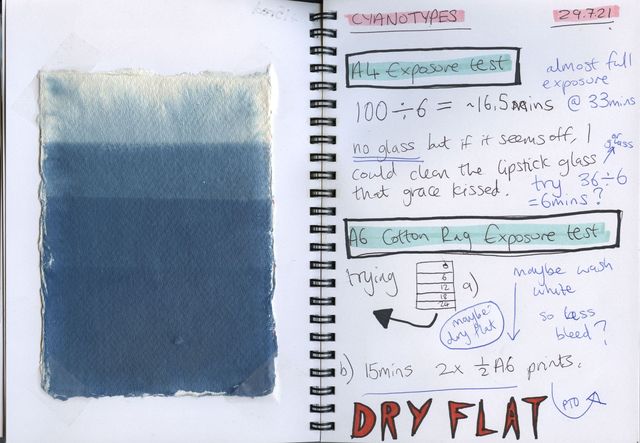 CYANOTYPES
29.7.21
A4 Exposure test
almost full
exposure
@ 33mins
100÷6 = ~16.5 mins
no glass but if it seems off, I
could clean the lipstick glass
that grace kissed.
or
glass
try 36÷6
=6mins?
A6 Cotton Rag Exposure test
trying
0
6
12
18
24
a)
maybe wash
white
so less
bleed?
maybe
dry flat
b) 15mins 2x ½A6 prints.
DRY FLAT
PTO